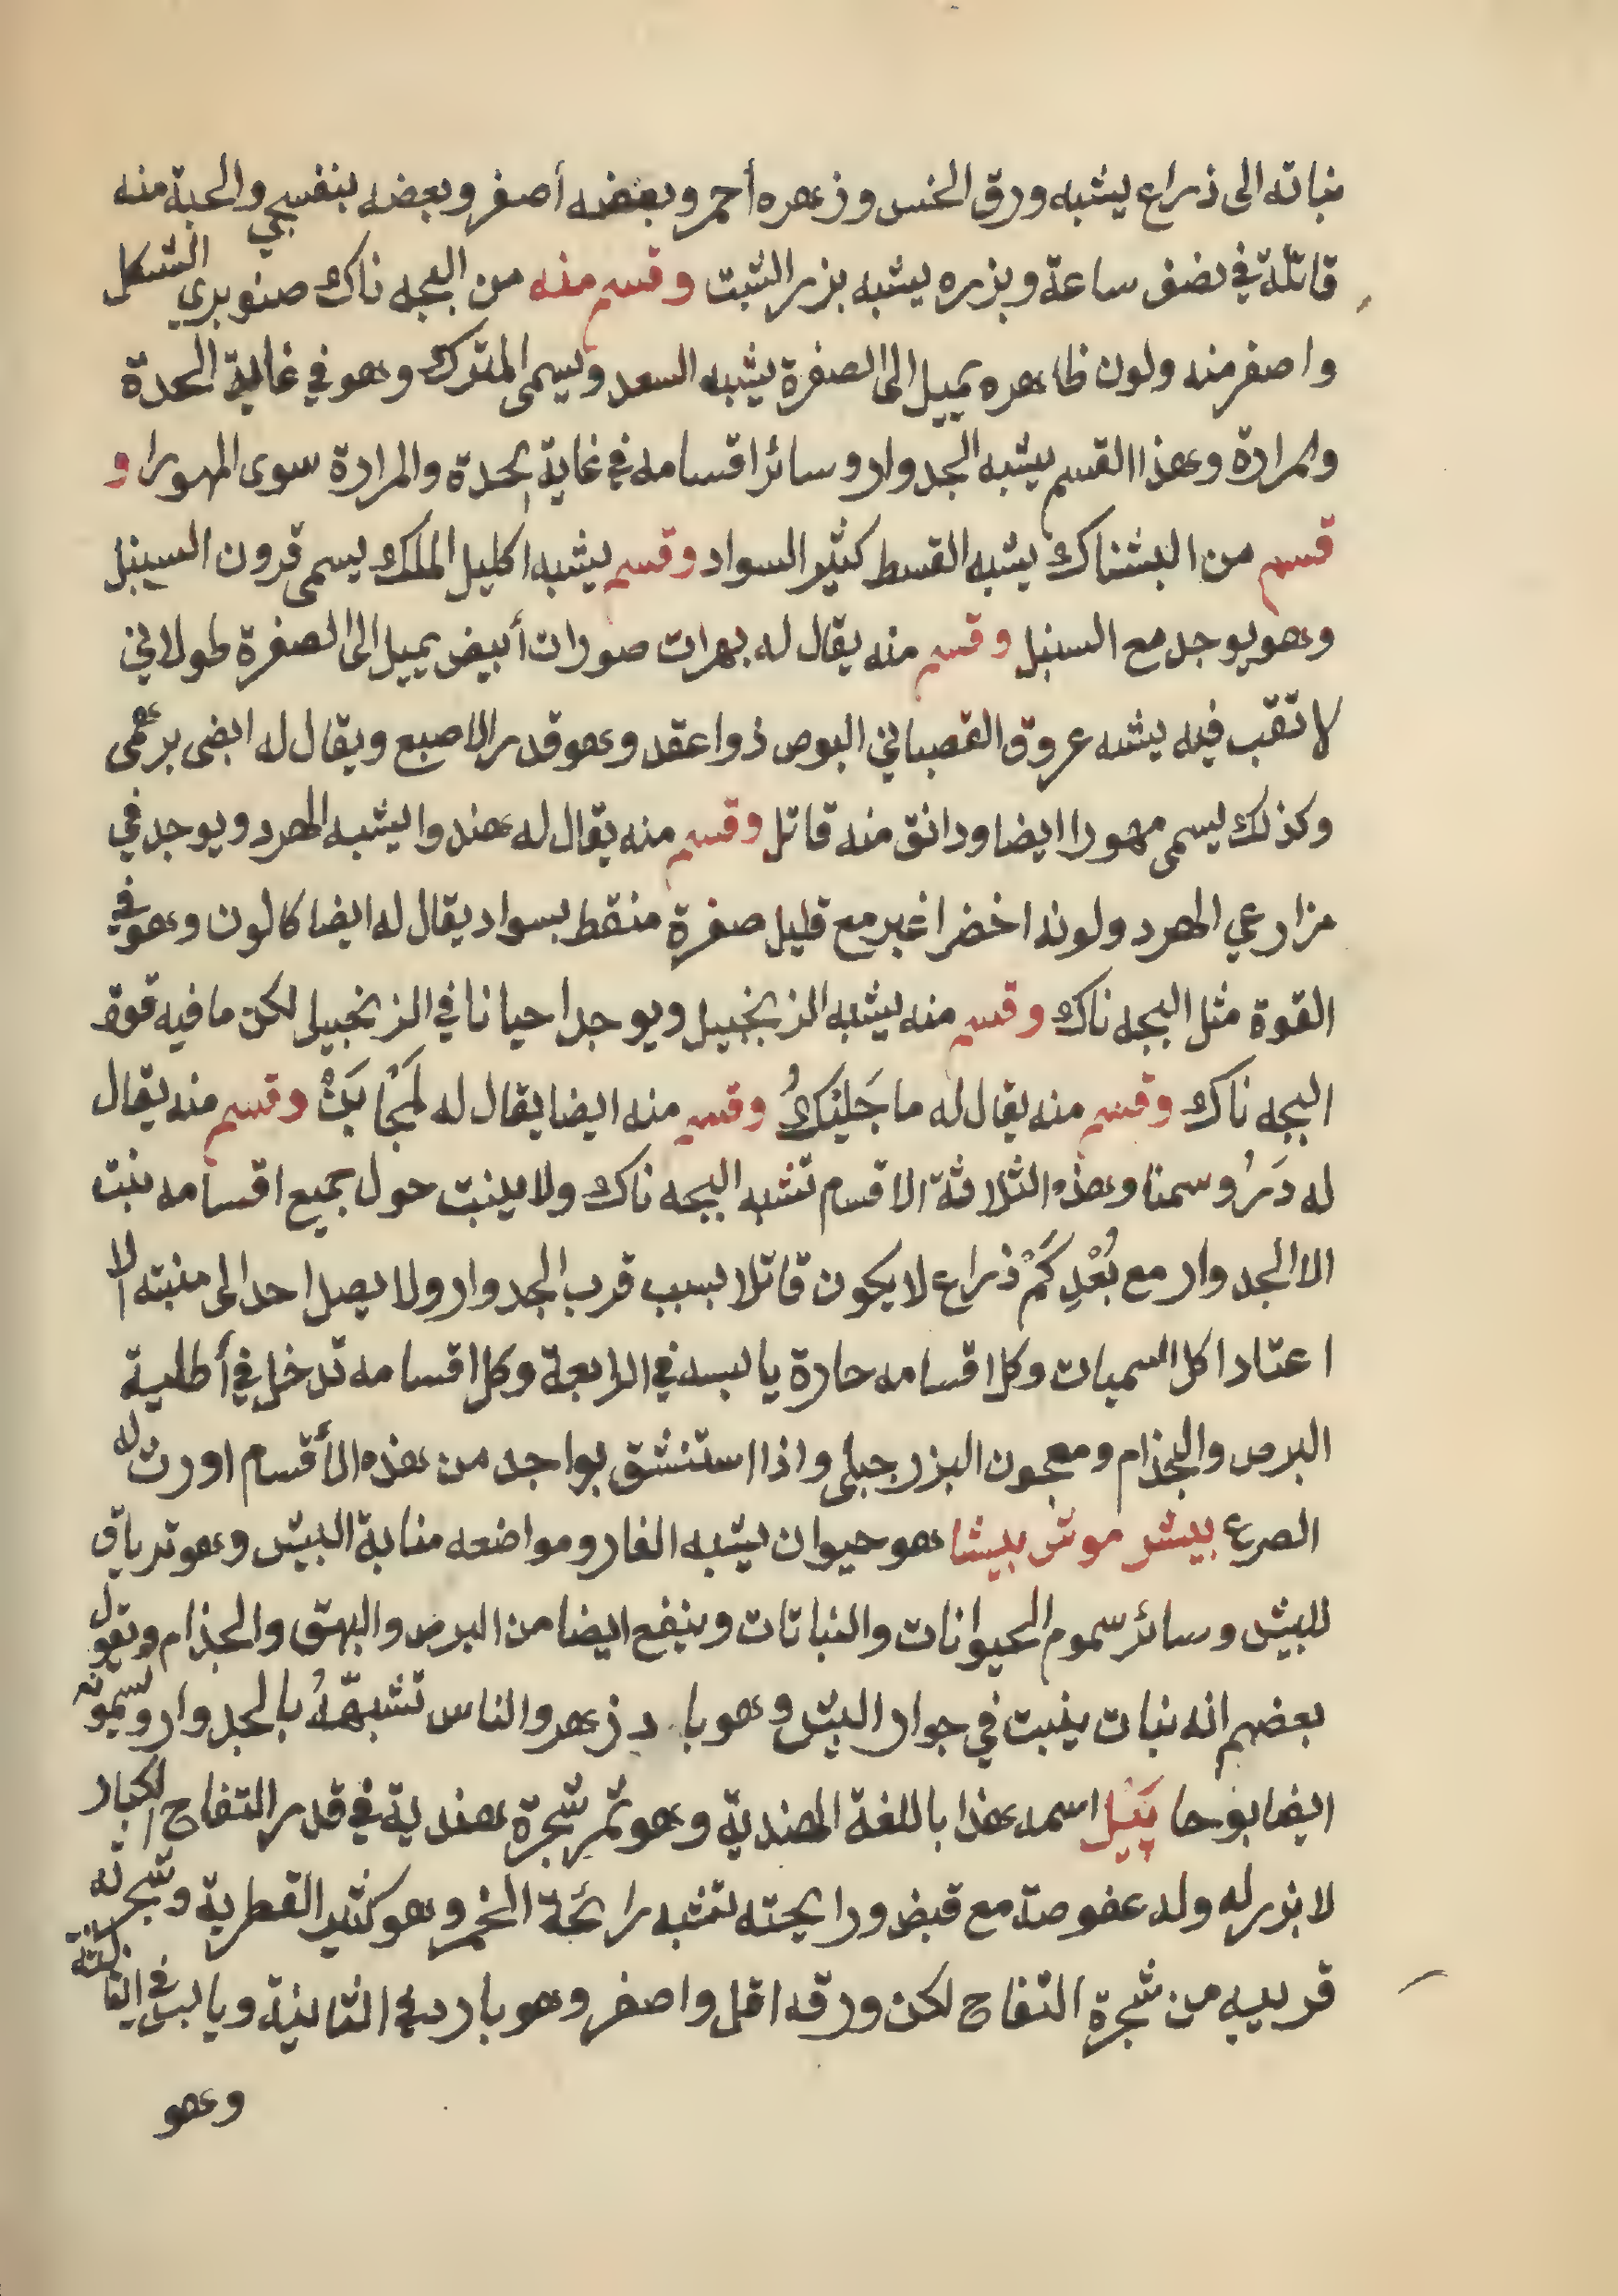 نباته الى ذراع يشبه ورق الخس وزهره أحمر وبعضه أصفر وبعضه بنفسجي والحبة منه
قاتلة في نصف ساعة وبزره يشبه بزر الشبت وقسم منه من البجه ناك صنوبري الشكل
واصفر منه ولون ظاهره يميل الى الصفرة يشبه السعد ويسمى المترك وهو في غاية الحدة
والمرارة وهذا القسم يشبه الجدوار وسائر اقسامه في غاية الحدة والمرارة سوى المهورا و
قسم من البشناك يشبه القسط كثير السواد وقسم يشبه اكليل الملك يسمى قرون السنبل
وهو يوجد مع السنبل وقسم منه يقال له بهرات صورات أبيض يميل الى الصفرة طولاني
لا ثقب فيه يشبه عروق القصباني البوص ذوا عقد وهو قدر الاصبع ويقال له ايضى برهمى
وكذلك يسمى مهورا ايضا ودانق منه قاتل وقسم منه يقال له هندوا يشبه الهرد ويوجد في
مزارعي الهرد ولونه اخضر اغبر مع قليل صفرة منقط بسواد يقال له ايضا كالون وهو في
القوة مثل البجه ناك وقسم منه يشبه الزنجبيل ويوجد احيانا في الزنجبيل لكن ما فيه قوة
البجه ناك وقسم منه يقال له ماجَلِيَنكُ وقسم منه ايضا يقال له وقسم منه يقال
له دَرُوسمنا وهذه الثلاثة الاقسام تشبه البجه ناك ولا ينبت حول جميع اقسامه نبت
الا الجدوار مع بُعْدِ كَمْ ذراع لا يكون قاتلا بسبب قرب الجدوار ولا يصل احد الى منبته الا
اعتاد اكل السميات وكل اقسامه حارة يابسه في الرابعة وكل اقسامه تدخل في أطلية
البرص والجذام ومعجون البزرجلى واذا استنشق بواحد من هذه الأقسام اورث له
الصرع بيش موش بيشا هو حيوان يشبه الفار ومواضعه منابة البيش وهو ترياق
للبيش وسائر سموم الحيوانات والنباتات وينفع ايضا من البرص والبهق والجذام ويقول
بعضهم انه نبات ينبت في جوار البيش وهو باد زهر والناس تشبهُّه بالجدوار ويسمونه
ايضا بوحا بَيْل اسمه هذا باللغة الهندية وهو ثمر شجرة هندية في قدر التفاح الكبار
لا بزر له وله عفوصة مع قبض ورايحته تشبه رائحة الخمر وهو كثير القطرية وشجرته
قريبه من شجرة التفاح لكن ورقه اقل واصفر وهو بارد في الثانية ويابس في الثالثة
وهو